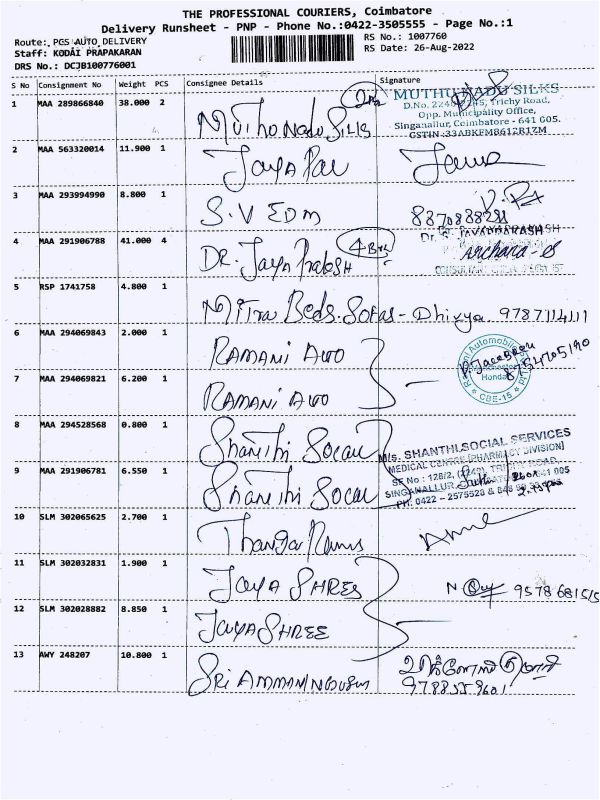 THE PROFESSIONAL COURIERS, Coimbatore
Delivery Runsheet - PNP - Phone No.:0422-3505555 - Page No.:1
Route: PGS AUTO DELIVERY
Staff: KODAI PRAPAKARAN
DRS No.: DCJB100776001
RS No.: 1007760
RS Date: 26-Aug-2022
S No Consignment No Weight PCS Consignee Details Signature
1 MAA 289866840 38.000 2 Muthu Nadu Silks
MUTHU NADU SILKS
D.No. Trichy Road,
Opp. Municipality Office,
Singanallur, Coimbatore - 641 605.
GSTIN :33ABKFM8612R1ZM
2 MAA 563320014 11.900 1 Jaya Pal
3 MAA 293994990 8.800 1 S.V EDM
4 MAA 291906788 41.000 4 DR. Jaya Prakash
Archana-S
5 RSP 1741758 4.800 1 Mitra Beds. Sofas - Dhivya 9787114111
6 MAA 294069843 2.000 1 RAMANI AUTO
8754705190
Ramani Automobiles
Honda
CBE-15
7 MAA 294069821 6.200 1 RAMANI AUTO
8 MAA 294528568 0.800 1 Shanthi Social
M/s. SHANTHI SOCIAL SERVICES
MEDICAL CENTRE [PHARMACY DIVISION]
SF No : 128/2, TRICHY ROAD,
SINGANALLUR, 641 005
PH: 0422 - 2575528 &
9 MAA 291906781 6.550 1 Shanthi Social
10 SLM 302065625 2.700 1
11 SLM 302032831 1.900 1 JAYA SHREE
12 SLM 302028882 8.850 1 JAYA SHREE
13 AWY 248207 10.800 1 SRI AMMAN